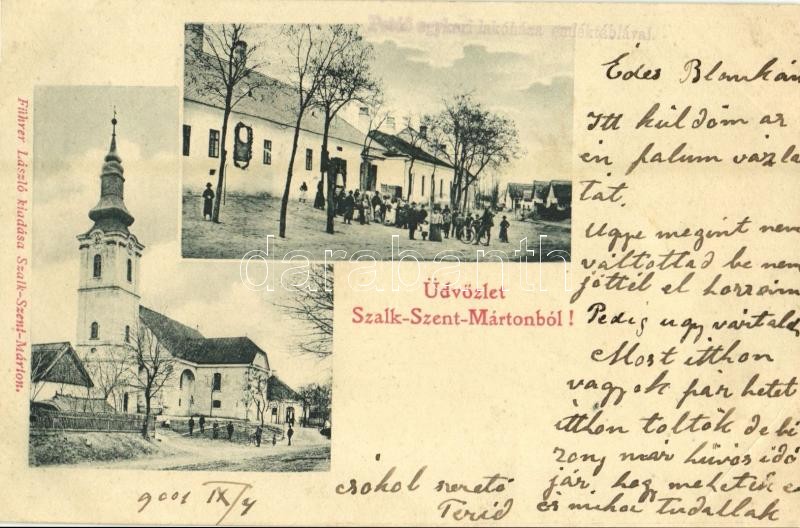 Petőfi egykori lakóháza emléktáblával.
Führer László kiadása Szalk-Szent-Márton.
darabanth
Üdvözlet
Szalk-Szent-Mártonból !
Édes Blankám
Itt küldöm az
én falum vázla
tát.
Ugye megint nem
váltottad be nem
jöttél el hozzám
Pedig ugy vártalak
Most itthon
vagyok pár hetet
itthon töltök de bi
zony már hüvös idő
jár, hog mehetük e
és mihor tudallak
csókol szerető
Teréd
9001 IX/4